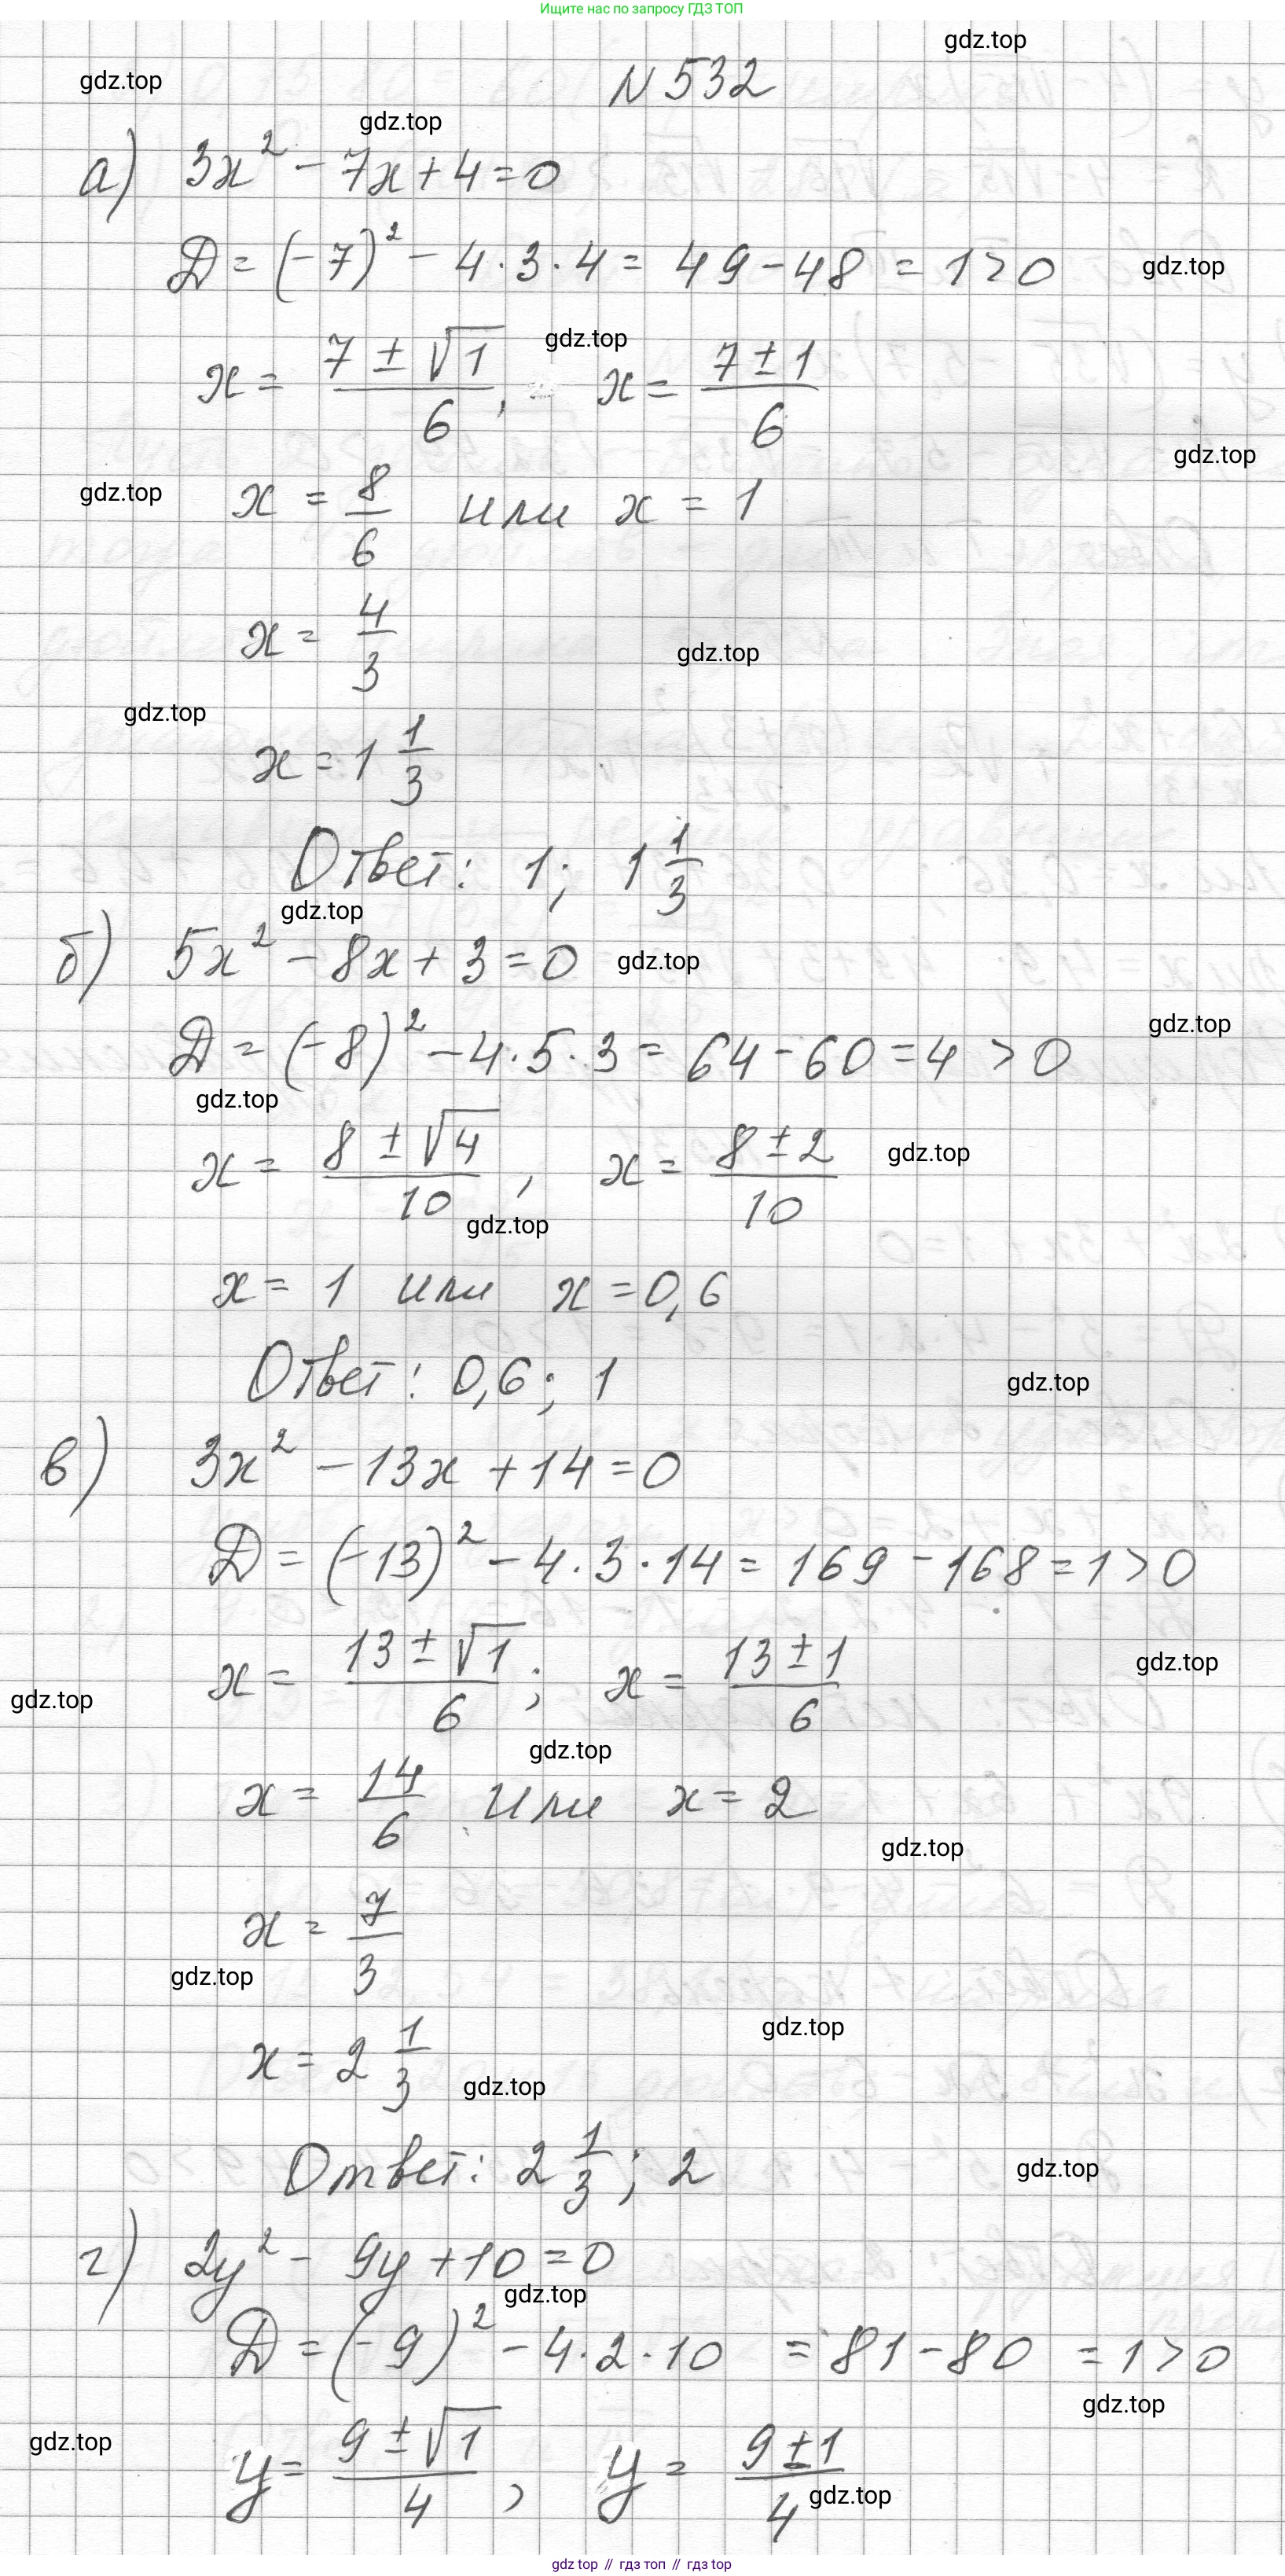 Ищите нас по запросу ГДЗ ТОП
gdz.top
N 532
gdz.top
gdz.top
а) 3x² - 7x + 4 = 0
D = (-7)² - 4·3·4 = 49 - 48 = 1 > 0
gdz.top
gdz.top
x = (7 ± √1)/6, x = (7 ± 1)/6
gdz.top
gdz.top
x = 8/6 или x = 1
x = 4/3
gdz.top
gdz.top
x = 1 1/3
Ответ: 1; 1 1/3
gdz.top
б) 5x² - 8x + 3 = 0
gdz.top
gdz.top
D = (-8)² - 4·5·3 = 64 - 60 = 4 > 0
gdz.top
x = (8 ± √4)/10, x = (8 ± 2)/10
gdz.top
gdz.top
x = 1 или x = 0,6
Ответ: 0,6; 1
gdz.top
в) 3x² - 13x + 14 = 0
D = (-13)² - 4·3·14 = 169 - 168 = 1 > 0
x = (13 ± √1)/6; x = (13 ± 1)/6
gdz.top
gdz.top
gdz.top
x = 14/6 или x = 2
gdz.top
x = 7/3
gdz.top
gdz.top
x = 2 1/3
gdz.top
Ответ: 2 1/3; 2
gdz.top
г) 2y² - 9y + 10 = 0
gdz.top
D = (-9)² - 4·2·10 = 81 - 80 = 1 > 0
gdz.top
gdz.top
y = (9 ± √1)/4, y = (9 ± 1)/4
gdz.top
gdz top // гдз топ // гдз top